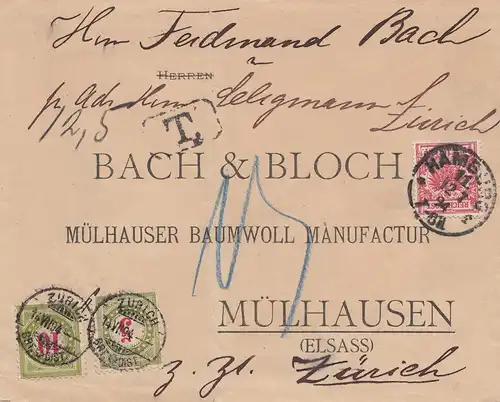 Hrn Ferdinand Bach
HERREN
p. Adr Hrn Seligmann
Zürich
12,5
T.
BACH & BLOCH
HAMBURG
REICHSPOST
MÜLHAUSER BAUMWOLL MANUFACTUR
15
MÜLHAUSEN
(ELSASS)
z. Zt. Zürich
ZÜRICH
ZÜRICH
10
5